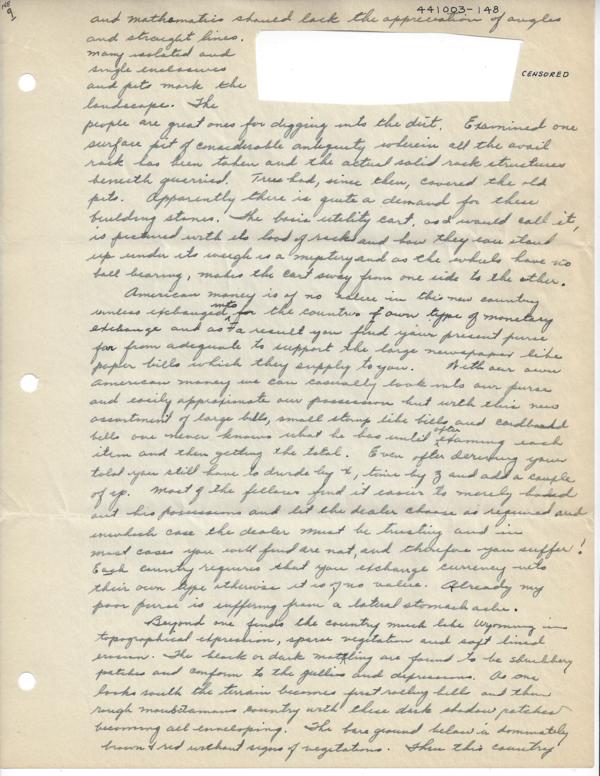 NE
9
441003-148
and mathematics should lack the appreciation of angles
and straight lines.
Many isolated and
single enclosures
and pits mark the
landscape. The
CENSORED
people are great ones for digging into the dirt. Examined one
surface pit of considerable ambiguity wherein all the avail
rock has been taken and the actual solid rock structures
beneath quarried. Trees had, since then, covered the old
pits. Apparently there is quite a demand for these
building stones. The basic utility cart, as I would call it,
is pictured with its load of rocks and how they can stand
up under its weigh is a mystery and as the wheels have no
ball bearing, makes the cart sway from one side to the other.
American money is of no value in this new country
unless exchanged into for the countrys of own type of monetary
exchange and as a result you find your present purse
far from adequate to support the large newspaper like
paper bills which they supply to you. With our own
American money we can casually look into our purse
and easily approximate our possession but with this new
assortment of large bills, small stamp like bills, and cardboard
bills one never knows what he has until after examing each
item and then getting the total. Even after deriving your
total you still have to divide by x, times by z and add a couple
of yp. Most of the fellows find it easier to merely
out his possessions and let the dealer choose as required and
inwhich case the dealer must be trusting and in
most cases you will find are not, and therefore you suffer!
Each country requires that you exchange currency into
their own type otherwise it is of no value. Already my
poor purse is suffering from a lateral stomach ache.
Beyond one finds the country much like Wyoming in
topographical expression, sparse vegetation and soft lined
erosion. The black or dark mottling are found to be shrubbery
patches and conform to the gullies and depressions. As one
looks south the terrain becomes first rolling hills and then
rough mountainous country with these dark shadow patches
becoming all enveloping. The bare ground below is dominately
brown & red without signs of vegetations. Then this country